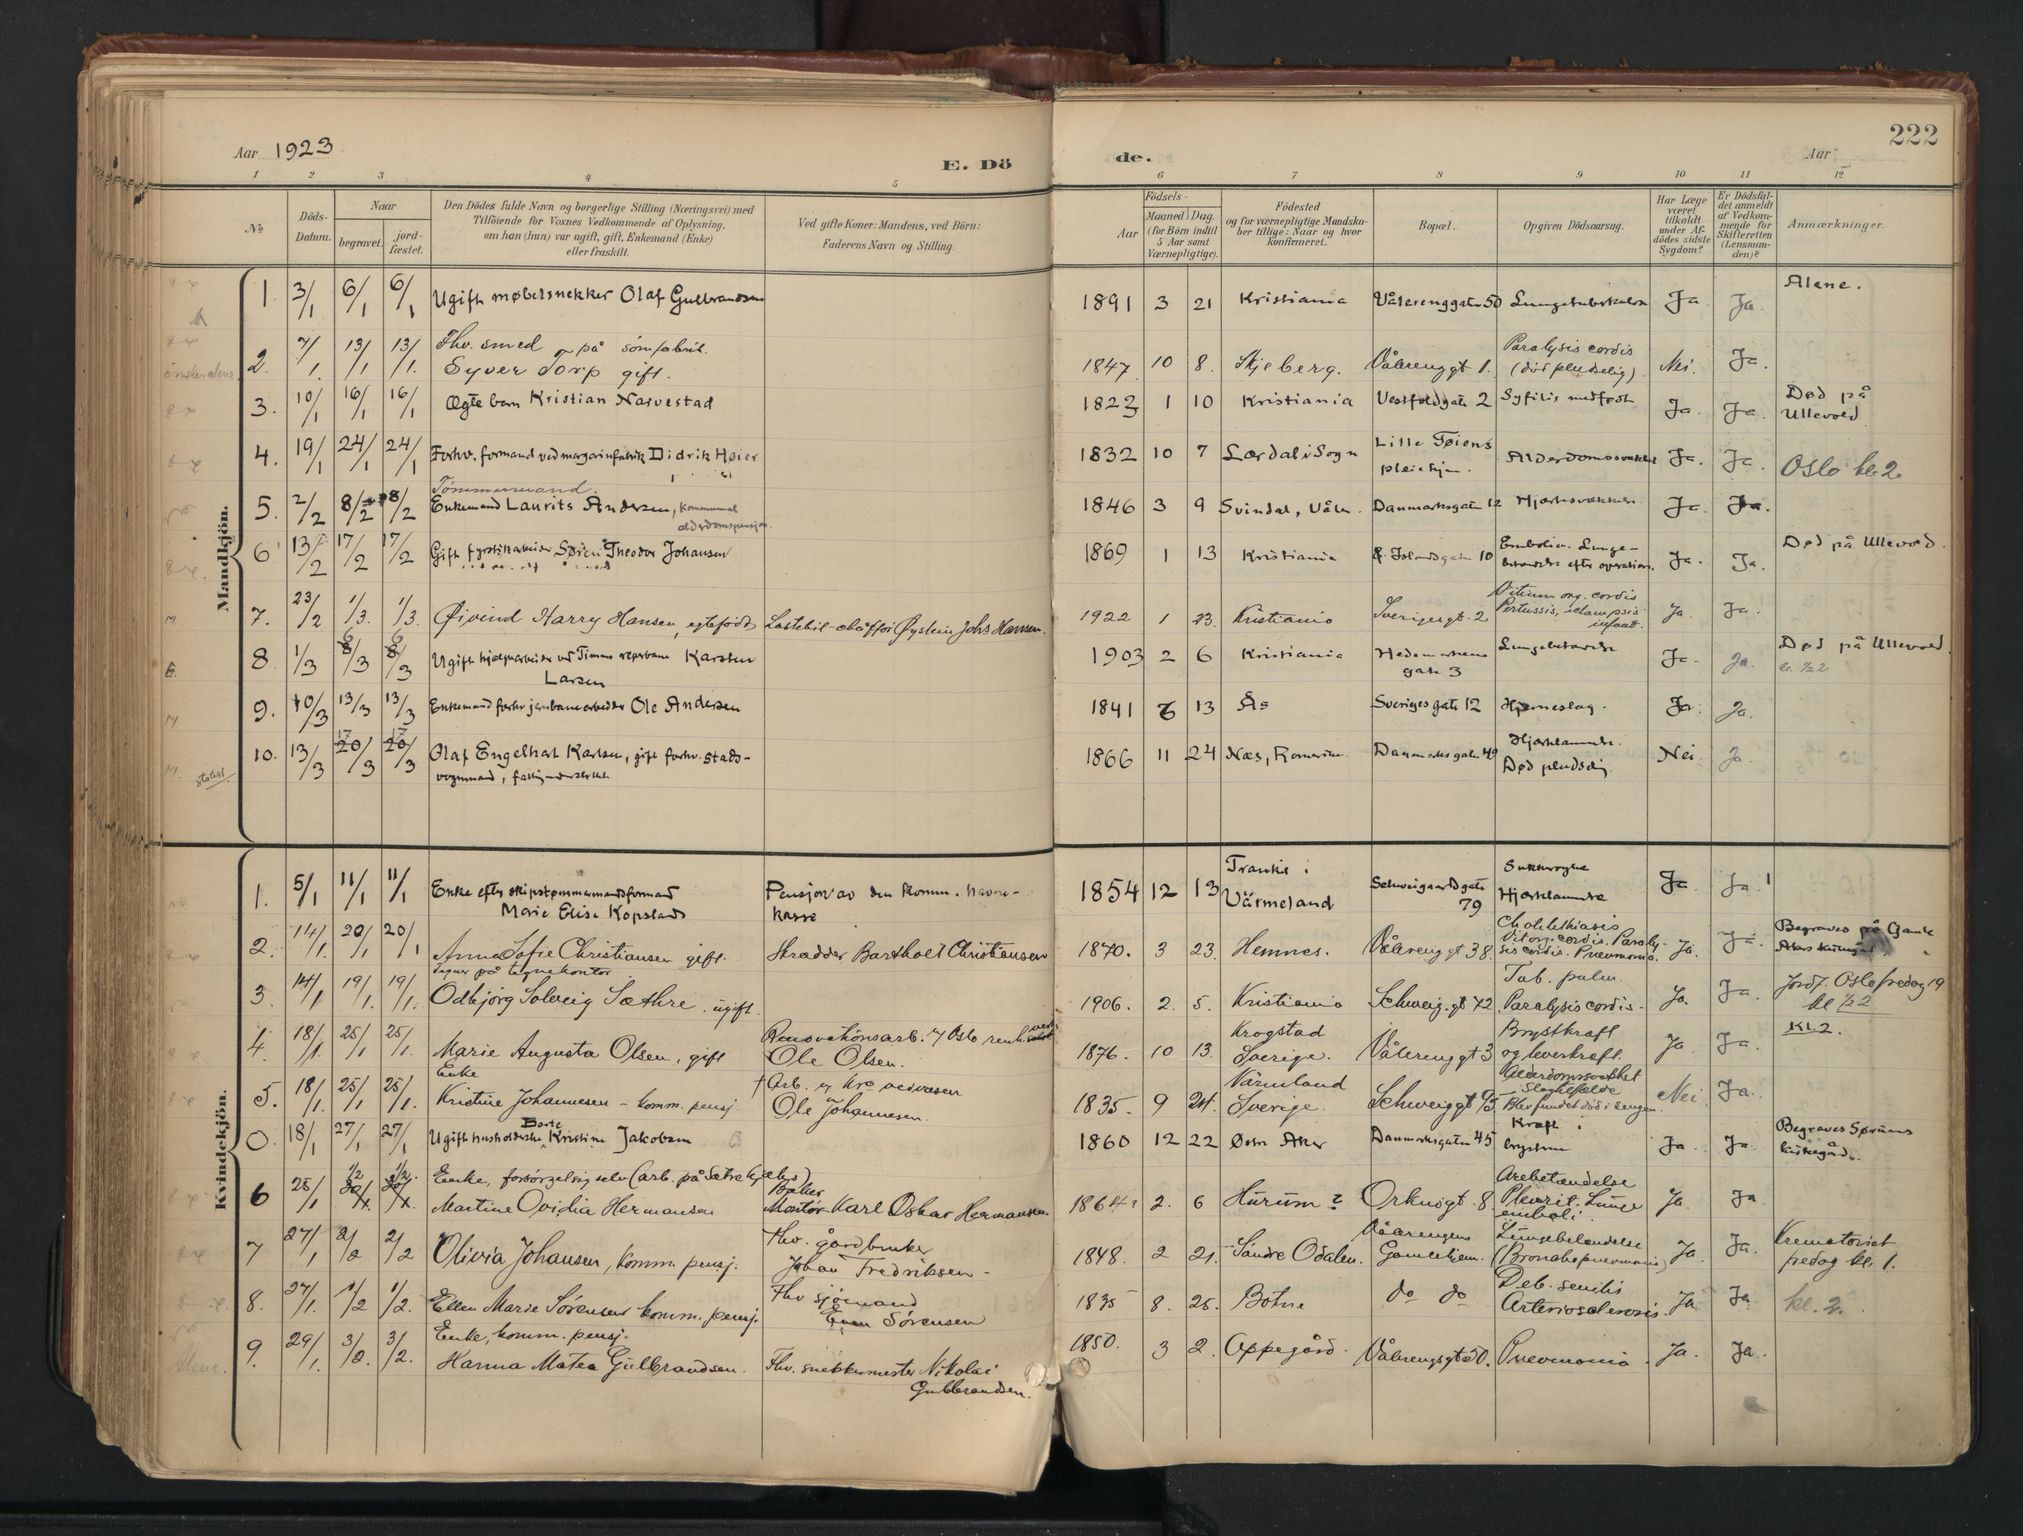 222
Aar 1923
E. Dö
de.
Aar
1 2 3 4 5 6 7 8 9 10 11 12
No
Döds-Datum.
Naar
begravet.
jord-fæstet.
Den Dödes fulde Navn og borgerlige Stilling (Næringsvei) med
Tilföiende for Voxnes Vedkommende af Oplysning,
om han (hun) var ugift, gift, Enkemand (Enke)
eller fraskilt.
Ved gifte Koner: Mandens, ved Börn:
Faderens Navn og Stilling.
Födsels-
Aar
Maaned Dag.
(for Börn indtil
5 Aar samt
Værnepligtige).
Födested
og for værnepligtige Mandska-
ber tillige: Naar og hvor
konfirmeret.
Bopæl.
Opgiven Dödsaarsag.
Har Læge
været
tilkaldt
under Af-
dödes sidste
Sygdom?
Er Dödsfal-
det anmeldt
af Vedkom-
mende for
Skifteretten
(Lensman-
den)?
Anmærkninger.
Mandkjön.
1. 3/1 6/1 6/1 Ugift møbelsnekker Olaf Gulbrandsen 1891 3 21 Kristiania Vålerenggaten 50 Lungetuberkulose Ja Ja. Alene.
2. 7/1 13/1 13/1 Fhv. smed på sømfabrik.
Syver Torp gift. 1847 10 8. Skjeberg. Vålerenggt 1. Paralysis cordis
(død pludselig). Nei. Ja.
3. 10/1 16/1 16/1 Ægte barn Kristian Narvestad 1823 1 10 Kristiania Vestfoldgate 2 Syfilis medfødt Ja. Ja. Død på
Ullevold.
4. 19/1 24/1 24/1 Forhv. formand ved margarinfabrik Didrik Høier 1832 10 7 Lærdal i Sogn Lille Tøiens
pleiehjem. Alderdomssvakhet Ja. Ja. Oslo kl. 2
5. 2/2 8/2 8/2 Tømmermand.
Enkemand Laurits Andersen, kommunal
alderdomspensjon. 1846 3 9 Svindal, Våler. Danmarksgate 12 Hjertesvækkelse Ja Ja.
6 13/2 17/2 17/2 Gift fyrstikarbeider Søren Theodor Johansen 1869 1 13 Kristiania Islandsgate 10 Embolier. Lunge-
betændelse efter operation. Ja. Ja. Død på Ullevold.
7. 23/2 1/3. 1/3. Øivind Harry Hansen, egtefødt Lastebil-chaffør Øystein Johs Hansen. 1922 1 23. Kristiania Sverigesgt. 2 Vitium org. cordis
Pertussis, eclampsia
infant. Ja. Ja.
8. 1/3 6/3 6/3 Ugift hjælpearbeider ved Timms reperbane Karsten
Larsen 1903 2 6 Kristiania Hedemarkens
gate 3 Lungebetændelse Ja. Ja. Død på Ullevold.
kl. 1/2 2
9. 10/3 13/3 13/3 Enkemand forhv jernbanearbeider Ole Andersen 1841 6 13 Ås Sverigesgate 12 Hjerneslag. Ja. Ja.
10. 13/3 17 20/3 17 20/3 Olaf Engelhart Karlsen, gift forhv. stads-
vognmand, fattigunderstøttet 1866 11 24 Næs, Romerike. Danmarksgaten 49 Hjertelammelse.
Død pludselig. Nei. Ja.
Kvindekjön.
1. 5/1 11/1 11/1 Enke efter skipstømmermandsformand
Marie Elise Kopstad Pensjon av den komm. havne-
kasse 1854 12 13 Trankil i
Värmeland Schweigaardsgate
79 Sukkersyke
Hjertelammelse Ja. Ja.
2. 14/1. 20/1 20/1 Anna Sofie Christiansen gift. Skrædder Barthold Christiansen 1870. 3 23. Hemnes. Vålerenggt 38. Cholelithiasis
Vit. org. cordis. Paraly-
sis cordis. Pneumonia. Ja. Ja. Begraves på Gamle
Aker kirkegård
3. 14/1 19/1. 19/1. Tegner på tegnekontor
Odbjørg Solveig Sæthre. ugift. 1906. 2. 5. Kristiania Schweig.gt 72. Tub. pulm.
Paralysis cordis. Ja Ja. Jordf. Oslo fredag 19
kl 1/2 2
4. 18/1. 25/1 25/1. Marie Augusta Olsen, gift Renovationsarb. v/ Oslo renh.verk
Ole Olsen. 1876. 10 13. Krogstad
Sverige. Vålerenggt 3 Brystkræft
og leverkræft. Ja Ja. Kl. 2.
5. 18/1. 25/1. 25/1. Enke
Kristine Johannesen - komm. pensj † Arb. v/ Kra veivæsen
Ole Johannesen. 1835. 9 24. Värmland
Sverige. Schweiggt 95. Alderdomssvakhet
Slagtilfælde
Blev fundet død i sengen. Nei. Ja.
0. 18/1 27/1 27/1. Ugift husholderske Borte Kristine Jakobsen 1860 12 22 Østre Aker Danmarksgaten 45 Kræft i
brystene Ja Ja. Begraves Sørums
kirkegård.
6 25/1 1/2 30/1 1/2. 30/1 Enke, forsørget sig selv (arb. på Sætre kjæksf)
Martine Ovidia Hermansen Baker
Montør Karl Oskar Hermansen. 1864 2. 6 Hurum ? Orknøgt. 8. Årebetændelse
Pleurit. Lunge
emboli. Ja. Ja
7 27/1 2/2 2/2 Olivia Johansen, komm. pensj. Fhv. gårdbruker
Johan Fredriksen - 1848. 2 21. Søndre Odalen. Vålerengens
Gamlehjem. Lungebetændelse
(Bronchopneumoni) Ja. Ja. Krematoriet
fredag kl. 1.
8. 27/1. 1/2 1/2. Ellen Marie Sørensen komm. pensj. Fhv sjømand
Even Sørensen 1835 8. 25. Botne do do Deb. senilis
Arteriosclerosis. Ja. Ja. kl. 2.
9. 29/1. 3/2. 3/2. Enke, komm. pensj.
Hanna Matea Gulbrandsen. Fhv. snekkermester Nikolai
Gulbrandsen. 1850. 3 2. Oppegård. Vålerengsgt 50. Pneumonia. Ja. Ja.